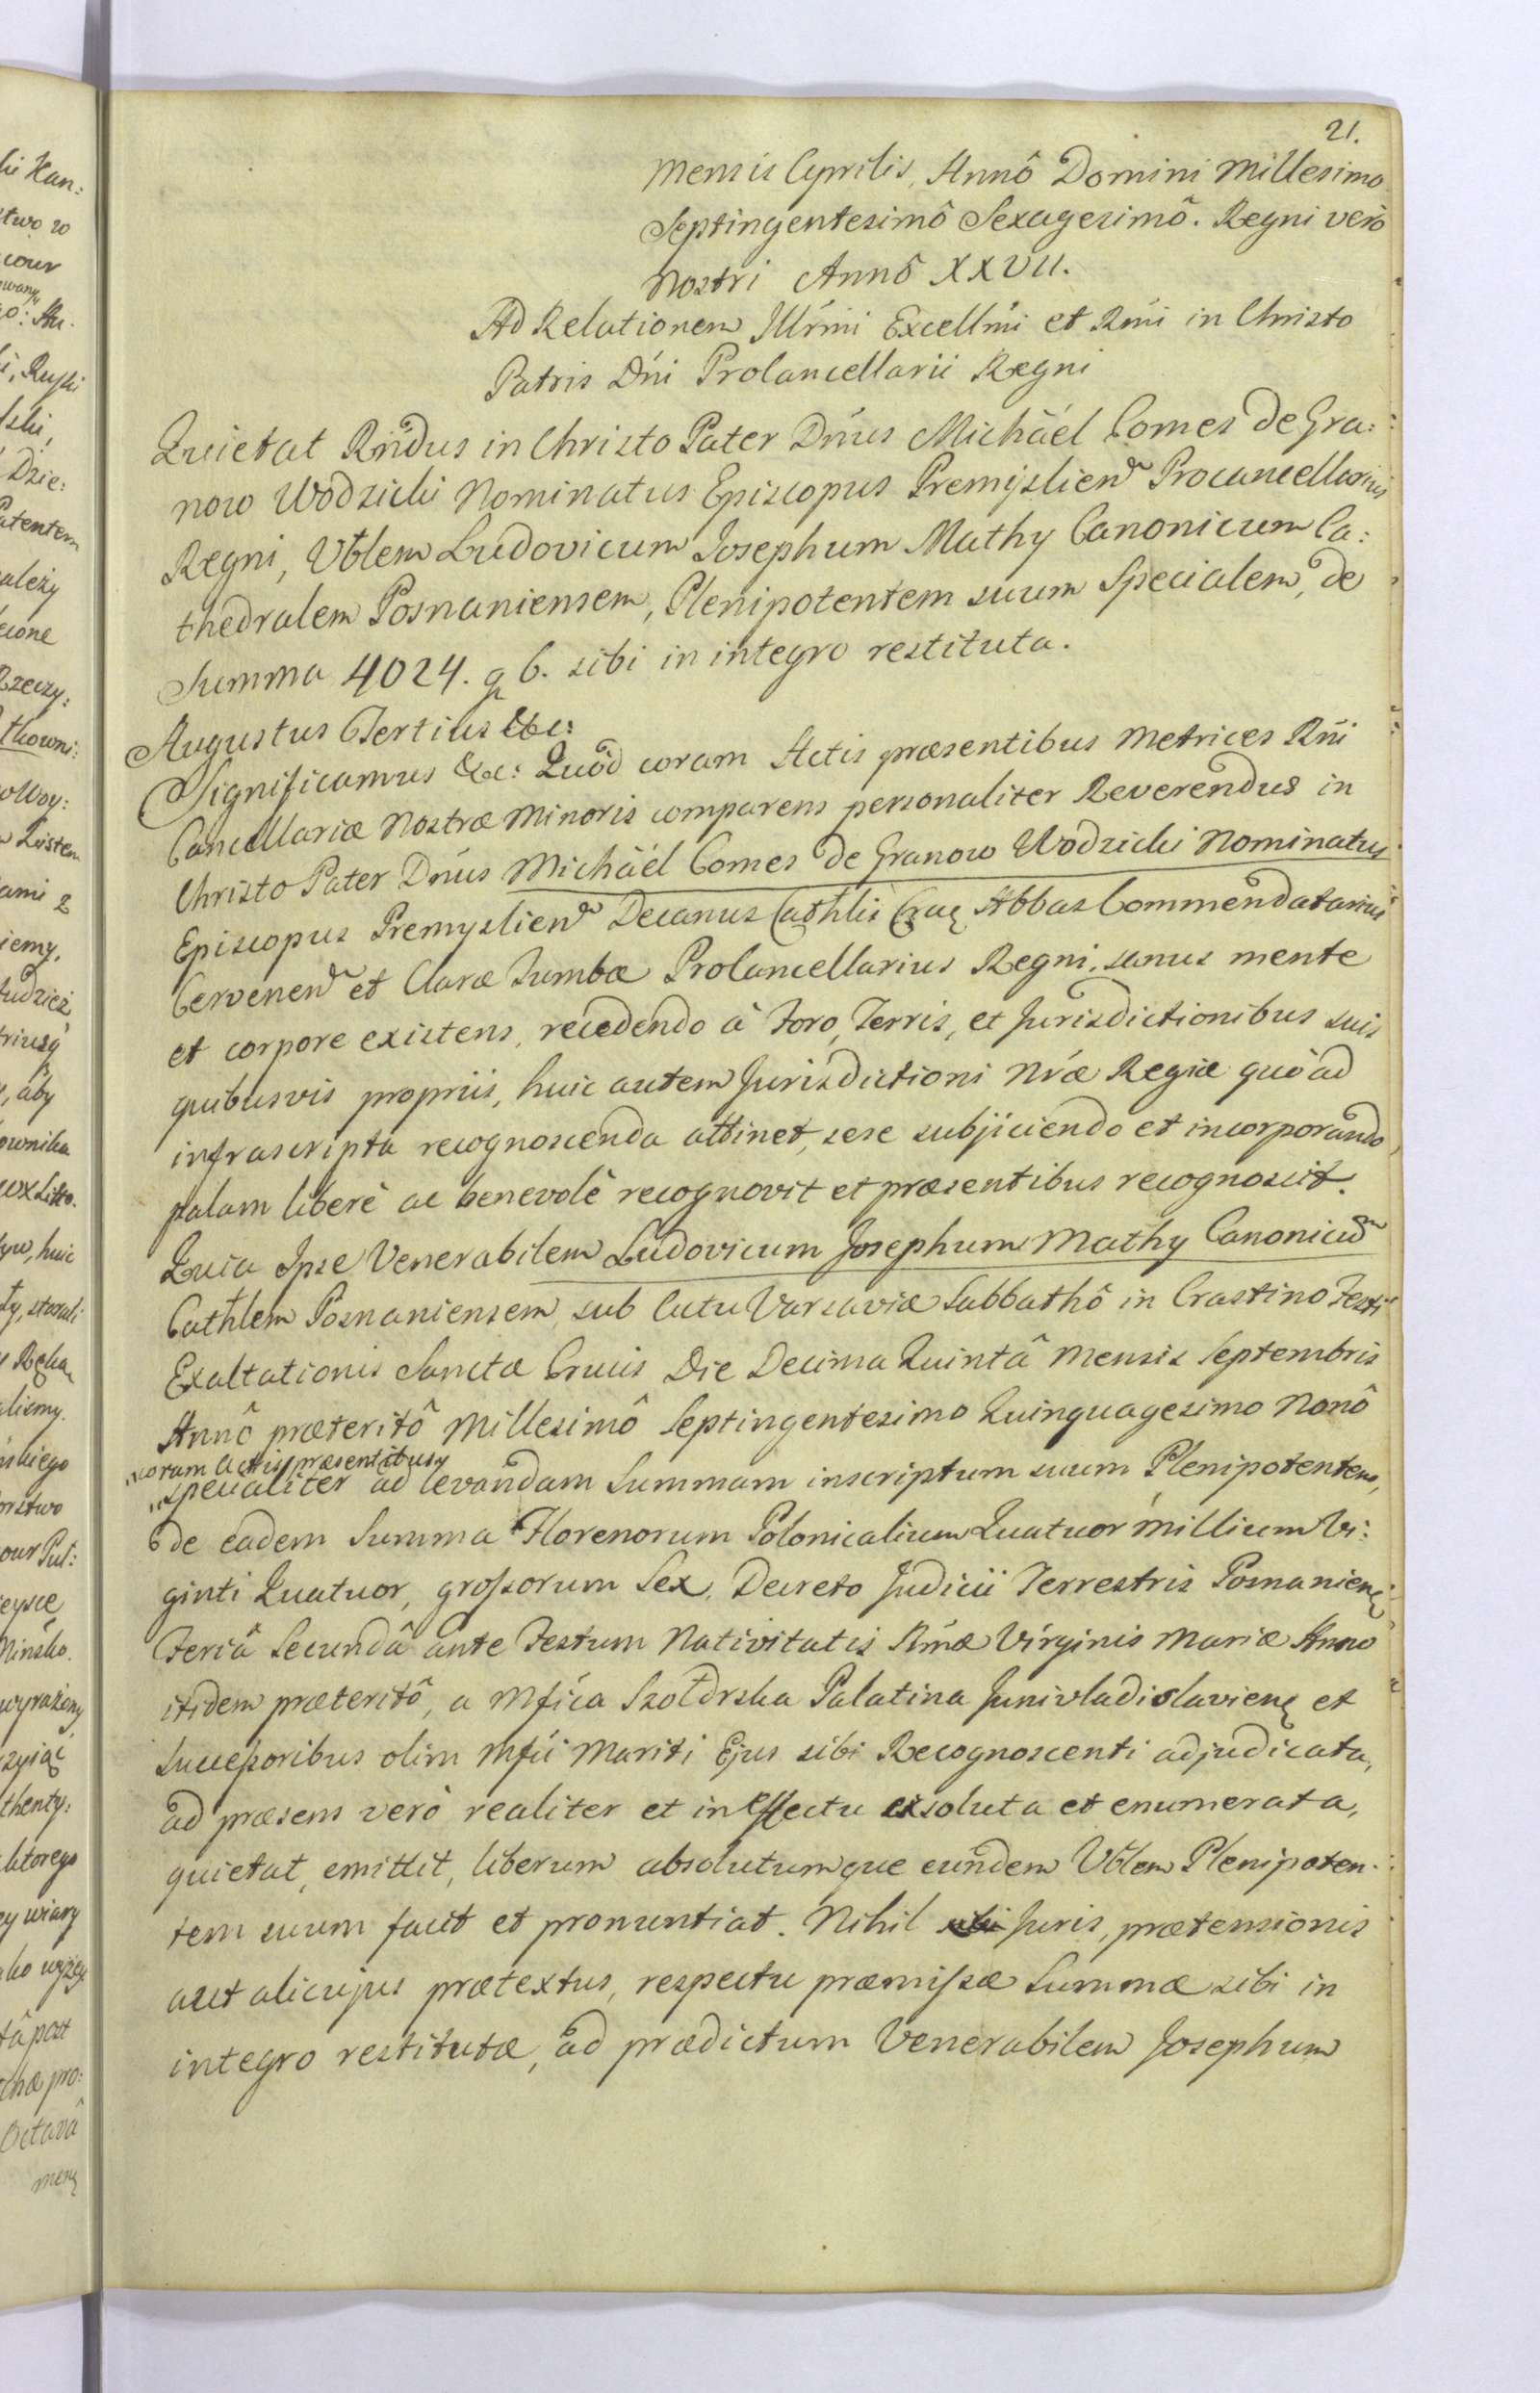 21.
Mensis Aprilis, Annô Domini Millesimo
Septingentesimô Sexagesimô. Regni verò
Nostri Annô XXVII.
Ad Relationem Illr̃mi Excellm̃i et Rm̃i in Christo
Patris Dñi Procancellarii Regni
Quietat Rñdus in Christo Pater Dñus Michäél Comes de Gra:
now Wodzicki Nominatus Episcopus Premyslien Procancellarius
Regni, Vb̃lem Ludovicum Josephum Mathy Canonicum Ca:
thedralem Posnaniensem, Plenipotentem suum Specialem, de
Summa 4024. g 6. sibi in integro restituta.
Augustus Tertius &c:
Significamus &c: Quòd coram Actis præsentibus Metrices Rñi
Cancellariæ Nostræ Minoris comparens personaliter Reverendus in
Christo Pater Dñus Michäél Comes de Granow Wodzicki Nominatus
Episcopus Premyslien Decanus Cathlis Crac Abbas Commendatarius
Cervenen et Claræ Tumbæ Procancellarius Regni, sanus mente
et corpore existens, recedendo à Foro, Terris, et Jurisdictionibus suis
quibusvis propriis, huic autem Jurisdictioni Nræ Regiæ quò ad
infrascripta recognoscenda attinet, sese subjiciendo et incorporando,
palam liberè ac benevolè recognovit et præsentibus recognoscit.
Quia Ipse Venerabilem Ludovicum Josephum Mathy Canonicum
Cathlem Posnaniensem, sub Actu Varsaviæ Sabbathô in Crastino Festi
Exaltationis Sanctæ Crucis Die Decima Quintâ Mensis Septembris
Annô præteritô Millesimô Septingentesimo Quinquagesimo Nonô
coram Actis præsentibus
specialiter ad levandam Summam inscriptum suum Plenipotentem,
de eadem Summa Florenorum Polonicalium Quatuor Millium Vi:
ginti Quatuor, grossorum Sex, Decreto Judicii Terrestris Posnanien
Feriâ Secundâ ante Festum Nativitatis Smæ Virginis Mariæ Anno
itidem præteritô, a Mfica Szołdrska Palatina Junivladislavien et
Successoribus olim Mfci Mariti Ejus sibi Recognoscenti adjudicata,
ad præsens verò realiter et in effectu exsoluta et enumerata,
quietat, emittit, liberum absolutumque eundem Vb̃lem Plenipoten-
tem suum facit et pronuntiat. Nihil sibi Juris, prætensionis
aut alicujus prætextus, respectu præmissæ Summæ sibi in
integro restitutæ, ad prædictum Venerabilem Josephum